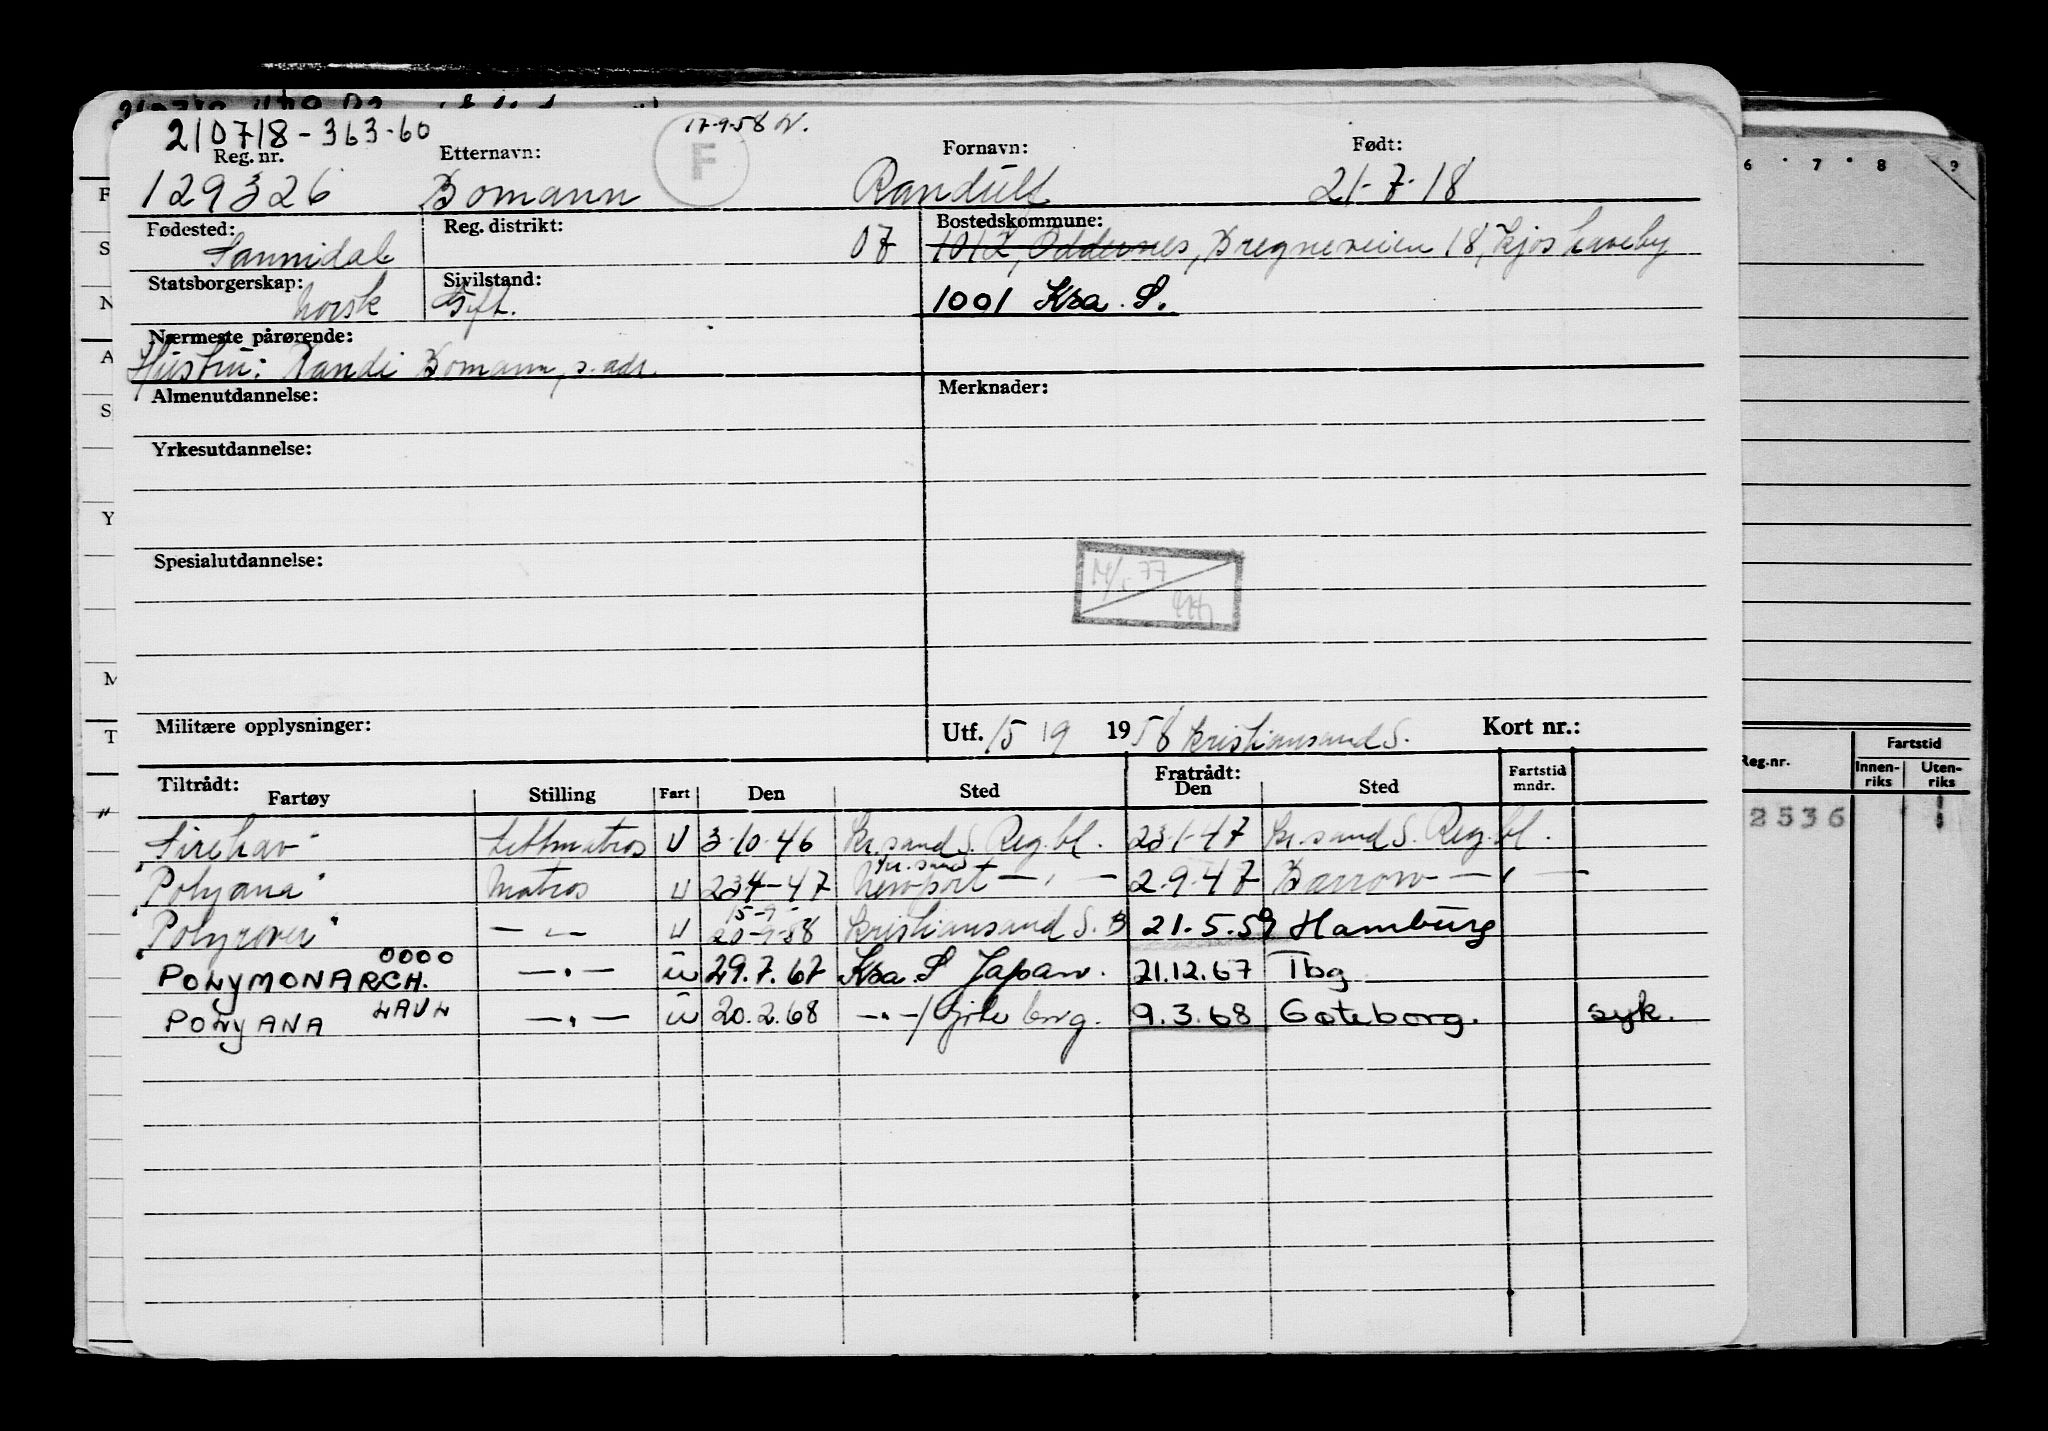 210718-363-60 17-9-58
Reg. nr. Etternavn: F Fornavn: Født:
129326 Bomann Randulf 21-7-18
Fødested: Reg. distrikt: Bostedskommune:
Sannidal 07 1012, Oddernes, Bregneveien 18, Kjos Haveby
Statsborgerskap: Sivilstand:
norsk Gift. 1001 Krsa. S.
Nærmeste pårørende:
Hustru: Randi Bomann, s. adr.
Almenutdannelse: Merknader:
Yrkesutdannelse:
Spesialutdannelse:
77
Militære opplysninger: Utf. 15 / 9 1958 Kristiansand S. Kort nr.:
Tiltrådt: Fratrådt: Fartstid
Fartøy Stilling Fart Den Sted Den Sted mndr.
"Sirehav" Lettmatros U 3-10-46 Kr.sand S. Reg.bl. 23-1-47 Kr.sand S. Reg.bl.
Kr.sand
"Polyana" Matros U 234-47 Newport — " — 2.9.47 Barrow — " —
15-9-
"Polyrover" — " — U 20-9-58 Kristiansand S. B 21.5.59 Hamburg
OOOO
POLYMONARCH. — " — U 29.7.67 Krsa S Japan. 21.12.67 Tbg
LAUL
POLYANA — " — U 20.2.68 — " — / Göteborg. 9.3.68 Goteborg. syk.
F
S
N
A
S
Y
M
T
"
6 7 8 9
Fartstid
Reg.nr. Innen-riks Uten-riks
2536